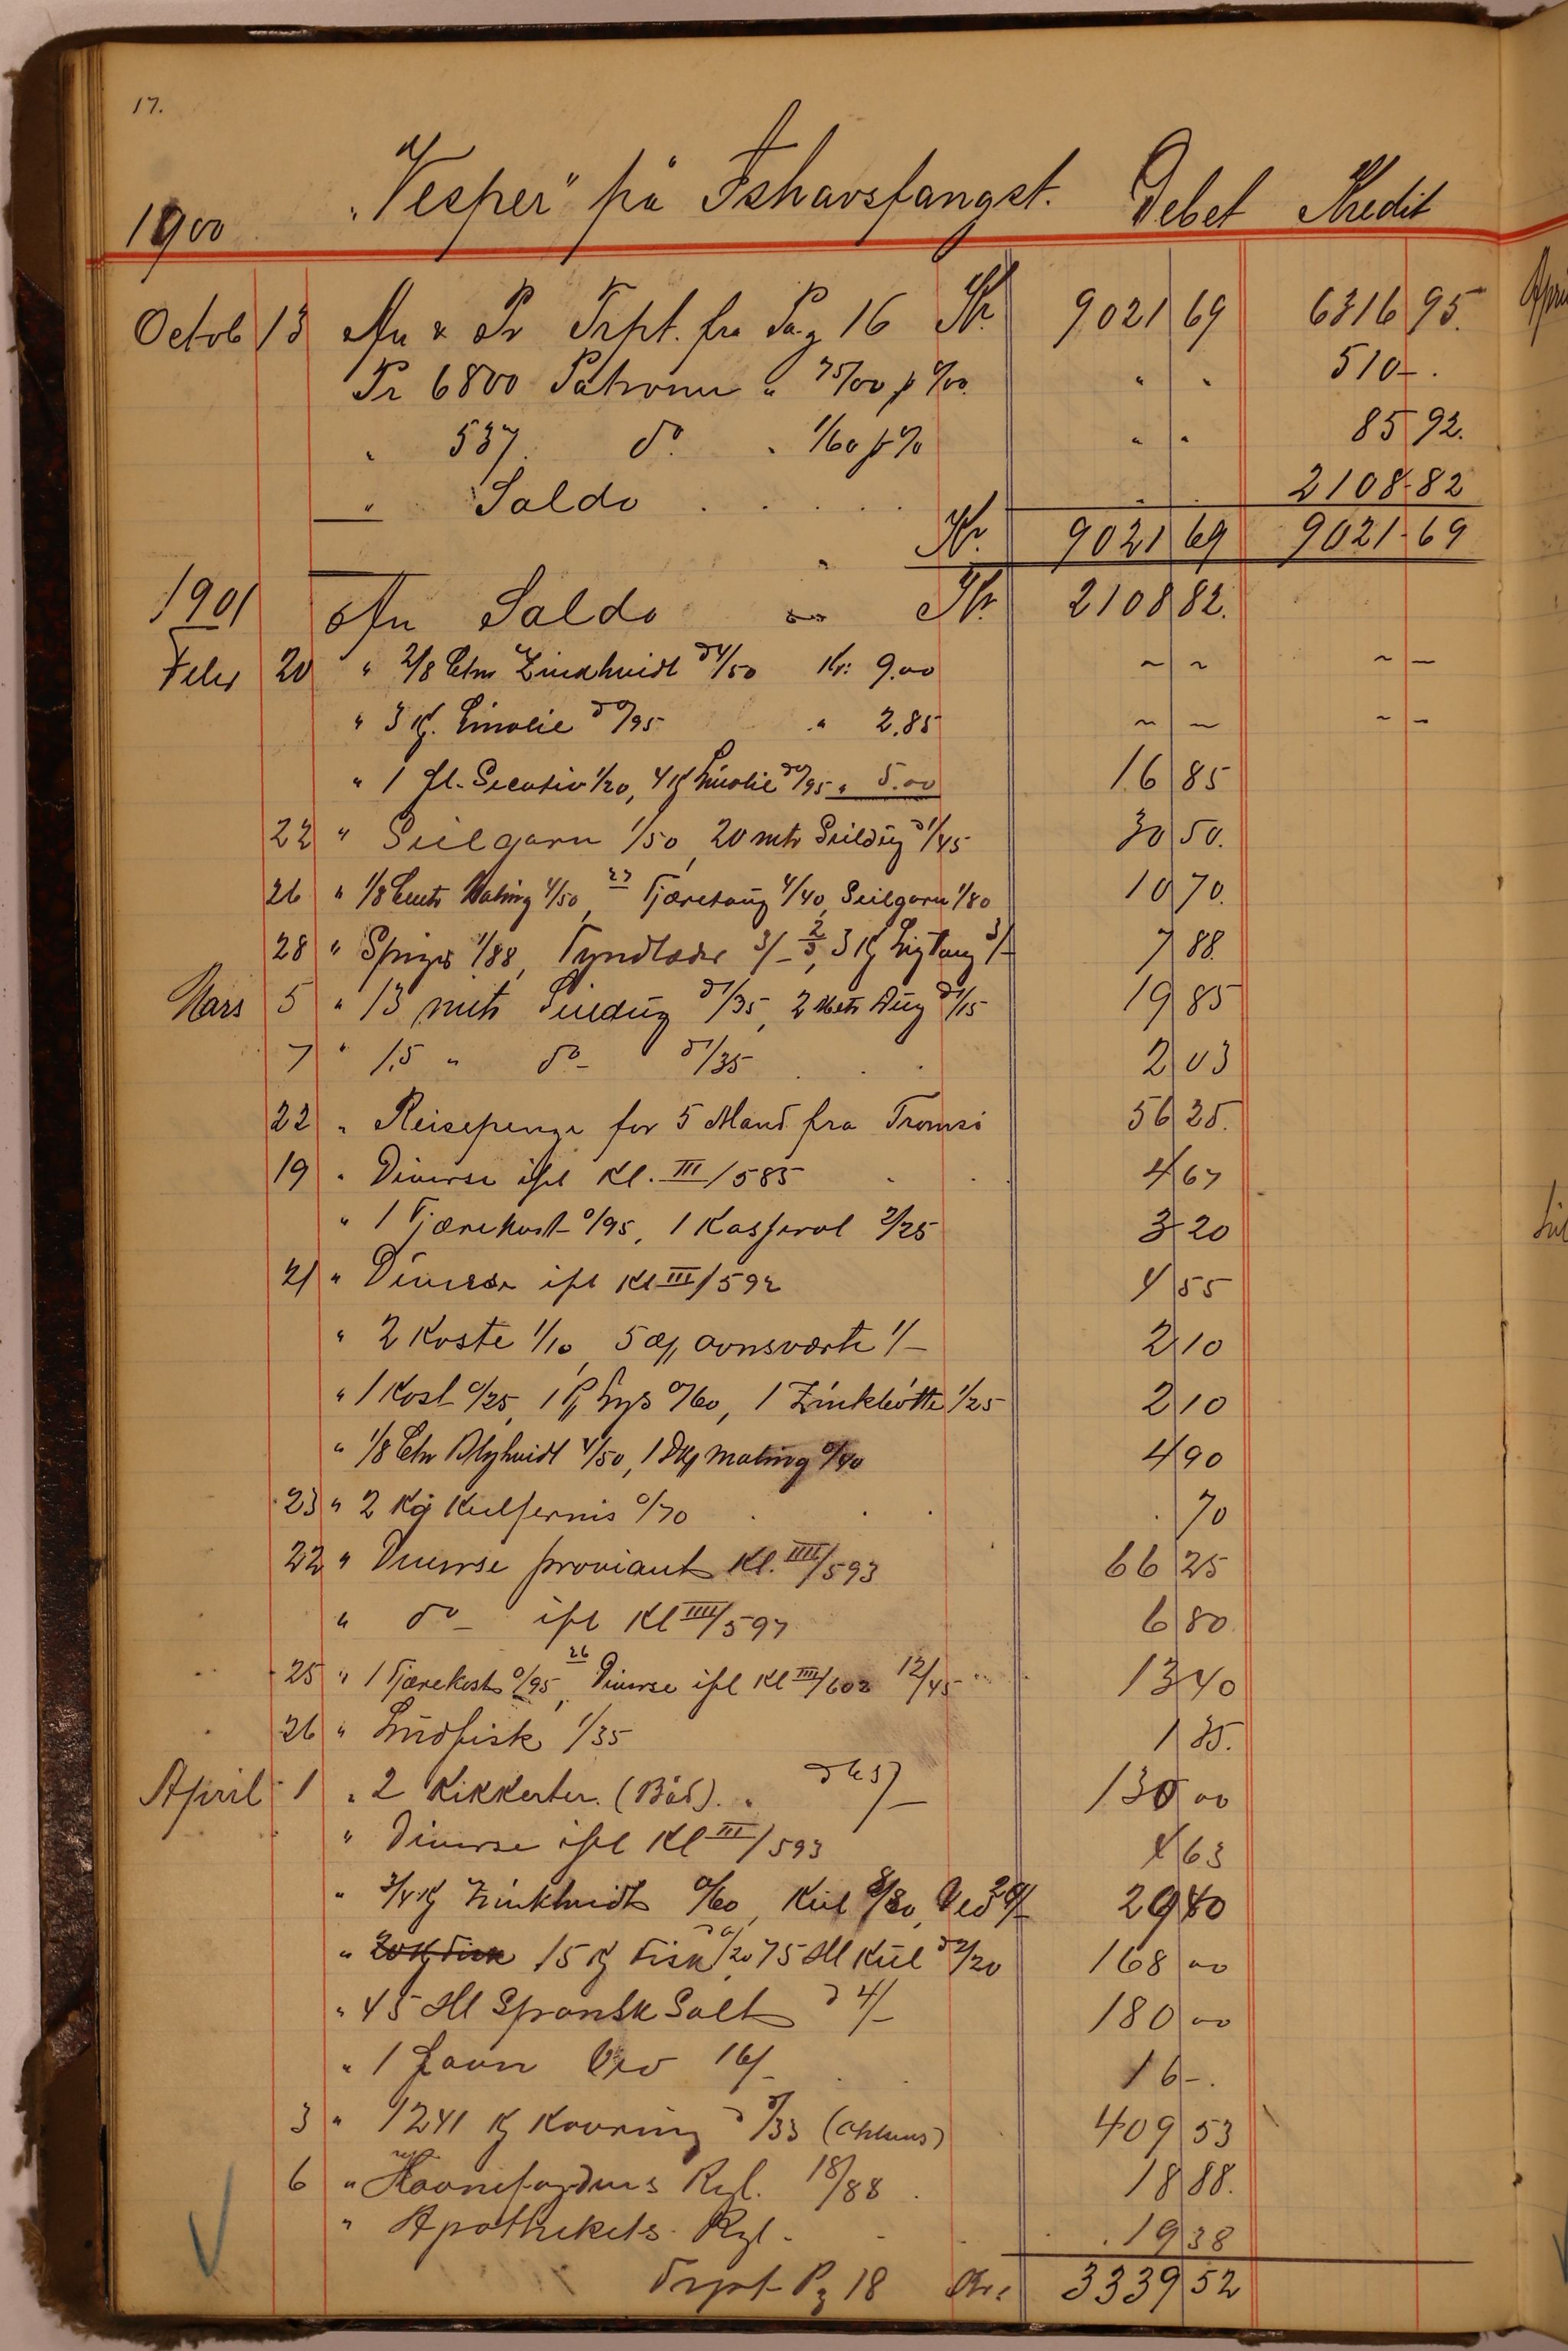 17.
"Vesper" på Ishavsfangst. Debet Kredit
1900
Octob 13 An & Pr Trpt. fra Pag 16 Kr. 9021 69 6316 95.
Pr 6800 Patroner " 75/00 p ‰ " " 510-.
" 537. do. " 1/60 p % " " 85 92.
" Saldo . . . . . 2108-82
" Kr. 9021 69 9021-69
1901 An Saldo Kr 2108 82.
Febr 20 " 2/8 Ctnr Zinkhvidt à 4/50 Kr: 9.00 ~ ~ ~ —
" 3 Kg. Linolie à 0/95 " 2.85 ~ — ~ —
" 1 fl. Secativ 1/20, 4 Kg Linolie à 0/95 " 5.00 16 85
22 " Seilgarn 1/50, 20 mtr Seildug à 1/45 30 50.
26 " 1/8 Centr Maling 4/50, 27 Tjæretaug 4/40, Seilgarn 1/80 10 70.
28 " Spiger 1/88, Tyndtæder 3/-, 2/3, 3 Kg Ligtaug 3/- 7 88.
Mars 5 " 13 mtr Seildug à 1/35, 2 Metr Dug à 1/15 19 85
7 " 1,5 " do - à 1/35 . . . 2 03
22 " Reisepenge for 5 Mand fra Tromsö 56 25.
19 " Diverse ifl Kl. III/585 . . . 4 67
" 1 Tjærekost 0/95, 1 Kasserol 2/25 3 20
21 " Diverse ifl Kl III/592 4 55
" 2 Koste 1/10, 5 æsk ovnsværte 1/- 2 10
" 1 Kost 0/25, 1 Pk Lys 0/60, 1 Zinkbötte 1/25 2 10
" 1/8 Ctn Blyhvidt 4/50, 1 Dkg maling 0/40 4 90
23 " 2 Kg Kulfernis 0/70 . . . . 70
22 " Diverse proviant Kl. IIII/593 66 25
" do - ifl Kl IIII/597 6 80
25 " 1 Tjærekost 0/95, 26 Diverse ifl Kl III/602 12/45 13 40
26 " Ludfisk 1/35 1 35.
April 1 " 2 Kikkerter. (Båd). " à 65/- 130 00
" Diverse ifl Kl III/593 4 63
" 3/4 Kg Zinkhvidt 0/60, Kul 8/80, Ved 20/- 29 40
" 20 Kg Fisk 15 Kg Fisk à 0/20, 75 Hl Kul à 2/20 168 00
" 45 Hl Spansk Salt à 4/- 180 00
" 1 Favn Ved 16/- . . 16-.
3 " 1241 Kg Kavring à 0/33 (Ohlens) 409 53
6 " Havnefogdens Rgl. 18/88 . 18 88.
" Apothekets Rgl. - . 19 38
Trpt Pg 18 Kr: 3339 52